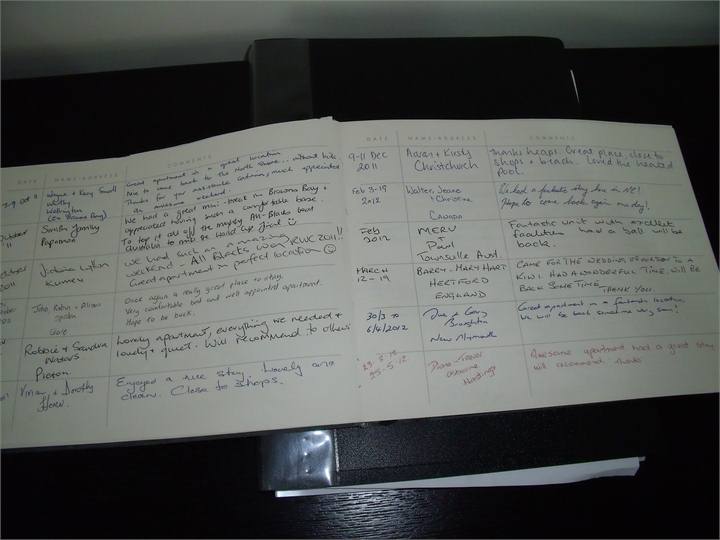 DATE NAME-ADDRESS COMMENTS
Great apartment in a great location
Nice to come back to the North Shore... without kids
Thanks for your assistance Catrina, much appreciated
an awesome weekend.
Wayne + Kerry Small
Wellington
We had a great mini-break in Browns Bay &
appreciated having such a comfortable base.
To top it all off the mighty All-Blacks beat
Australia to make the World Cup final
Smith Family
Papamoa
We had such an amazing
weekend - All Blacks won RWC 2011!!
Great apartment in perfect location
2011
Kumeu
Once again a really great place to stay.
Very comfortable bed and well appointed apartment.
Hope to be back.
John, Robin + Alison
Lovely apartment, everything we needed &
lovely & quiet. Will recommend to others
Robbie & Sandra
Picton
Enjoyed a nice stay. Lovely and
clean. Close to shops.
DATE NAME-ADDRESS COMMENTS
9-11 Dec
2011
Aaron & Kirsty
Christchurch
Thanks heaps. Great place, close to
shops & beach. Loved the heated
pool.
Feb 3-19
2012
Walter, Jeane
& Christine
Canada
We had a fantastic stay here in NZ!
Hope to come back again one day!
Feb
2012
MERV
&
Paul
Townsville Aust.
Fantastic unit with excellent
facilities had a ball will be
back.
MARCH
12-19
BARRY + MARY HART
HERTFORD
ENGLAND
CAME FOR THE WEDDING OF OUR SON TO A
KIWI. HAD A WONDERFUL TIME. WILL BE
BACK SOME TIME
THANK YOU.
30/3 to
6/4/2012
Sue & Gary
New Plymouth
Great apartment in a fantastic location
We will be back sometime very soon!
25.5.12
Hastings
Awesome apartment had a great stay
will recommend